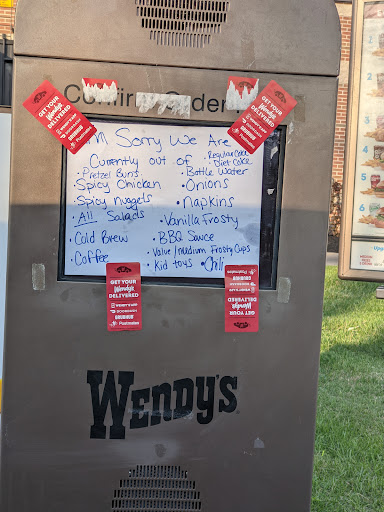 Confirm Order
I'm Sorry We Are
Currently out of
• Regular Coke
• Diet Coke
• Pretzel Buns
• Bottle Water
• Spicy Chicken
• Onions
• Spicy nuggets
• napkins
• All Salads
• Vanilla Frosty
• Cold Brew
• BBQ Sauce
• Coffee
• Value/medium Frosty Cups
• Kid toys
• Chili
GET YOUR
Wendy's
DELIVERED
GET YOUR
Wendy's
DELIVERED
GET YOUR
Wendy's
DELIVERED
WENDY'S APP
DOORDASH
GRUBHUB
Postmates
GET YOUR
Wendy's
DELIVERED
WENDY'S APP
DOORDASH
GRUBHUB
Postmates
WENDY'S